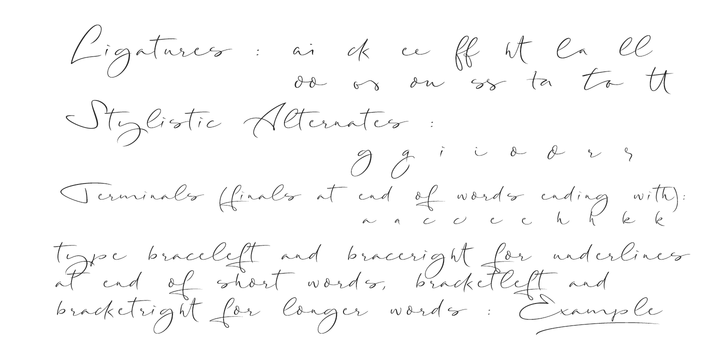 Ligatures : ai ck ee ff ht la ll
oo os ou ss ta to tt
Stylistic Alternates :
g g i i o o r s
Terminals (finals at end of words ending with):
a a c c e e h h k k
type braceleft and braceright for underlines
at end of short words, bracketleft and
bracketright for longer words : Example